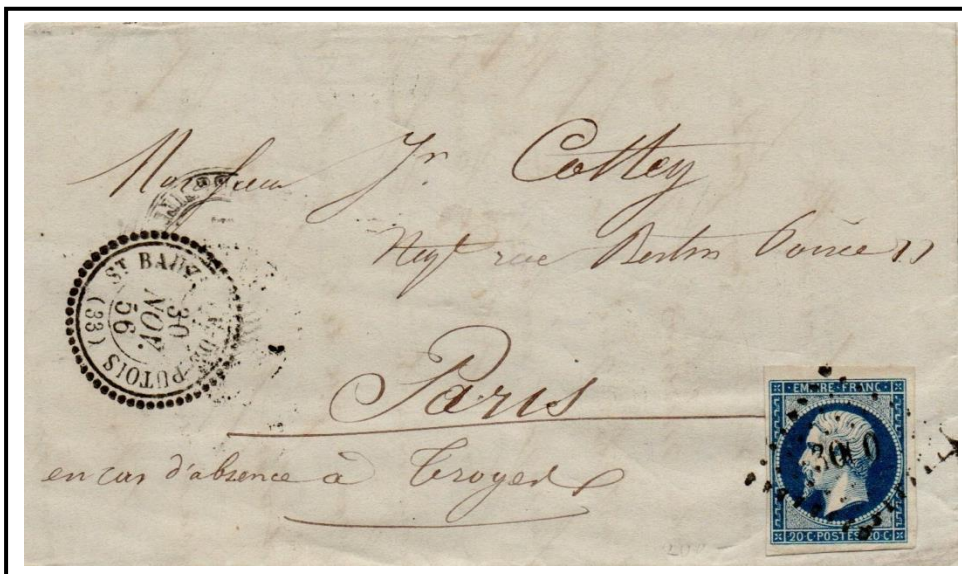 Monsieur Jn Cottey
Neyt rue Bertin Poirée 11
Paris
en cas d'absence à Troyes
ST BAUZ DE-PUTOIS
30
NOV.
56
(33)
EMPIRE·FRANC·
20 C·POSTES·20 C